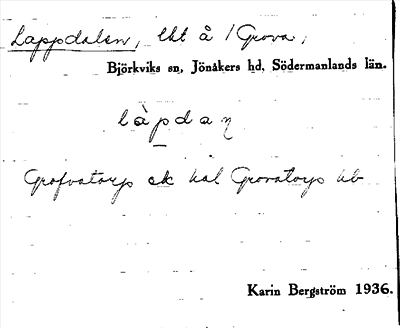 Lappdalen, lht å / Grova,
Björkviks sn, Jönåkers hd, Södermanlands län.
làpdaɳ
Grofvatorp ek hål Grovatorps hb
Karin Bergström 1936.